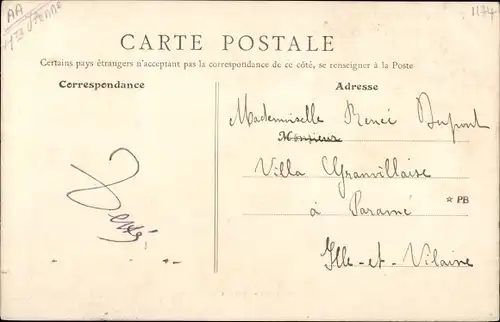 AA
1174
CARTE POSTALE
Certains pays étrangers n'acceptant pas la correspondance de ce côté, se renseigner à la Poste
Correspondance
Adresse
Mademoiselle Renée Dupont
Monsieur
Villa Granvillaise
à Paramé
☆ PB
Ille-et-Vilaine